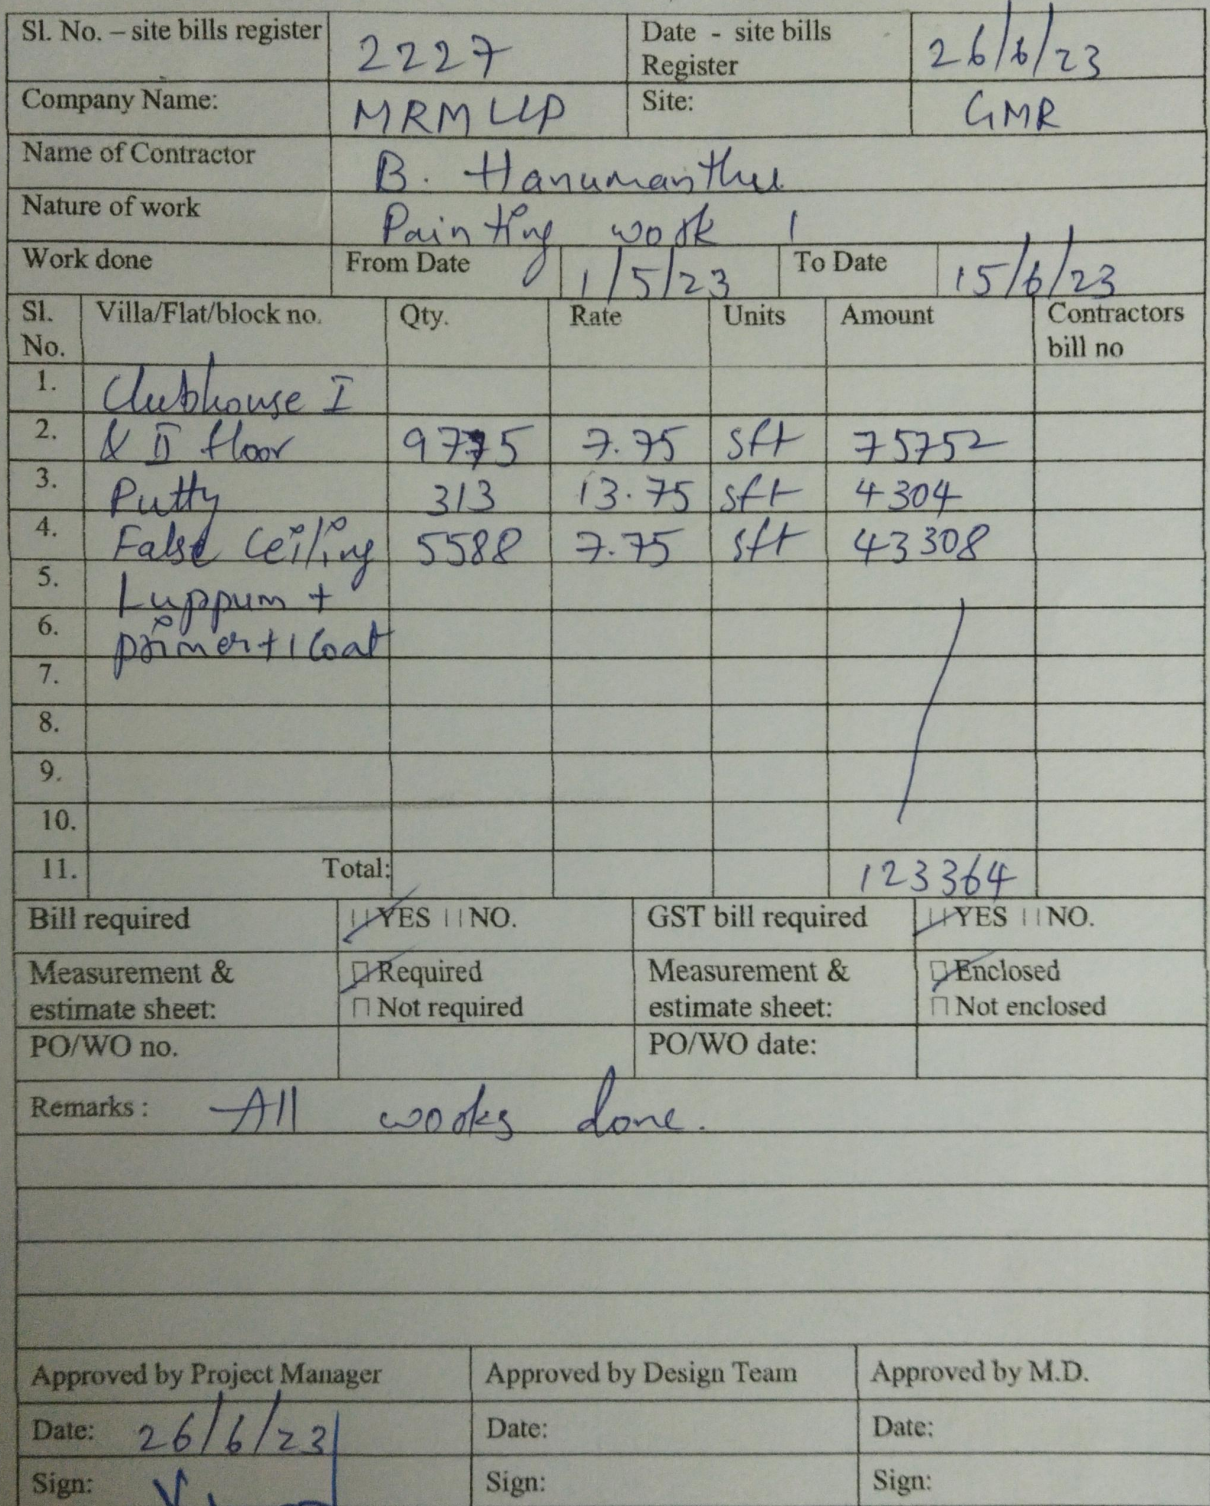 Sl. No. – site bills register 2227 Date - site bills Register 26/6/23
Company Name: MRM LLP Site: GMR
Name of Contractor B. Hanumanthu
Nature of work Painting work
Work done From Date 1/5/23 To Date 15/6/23
Sl. No. Villa/Flat/block no. Qty. Rate Units Amount Contractors bill no
1. Clubhouse I
2. & II floor 9775 7.75 sft 75752
3. Putty 313 13.75 sft 4304
4. False Ceiling 5588 7.75 sft 43308
5. Luppum +
6. primer + 1 Coat
7.
8.
9.
10.
11. Total: 123364
Bill required YES NO. GST bill required YES NO.
Measurement & estimate sheet: Required Measurement & estimate sheet: Enclosed
Not required Not enclosed
PO/WO no. PO/WO date:
Remarks : All works done.
Approved by Project Manager Approved by Design Team Approved by M.D.
Date: 26/6/23 Date: Date:
Sign: Sign: Sign: